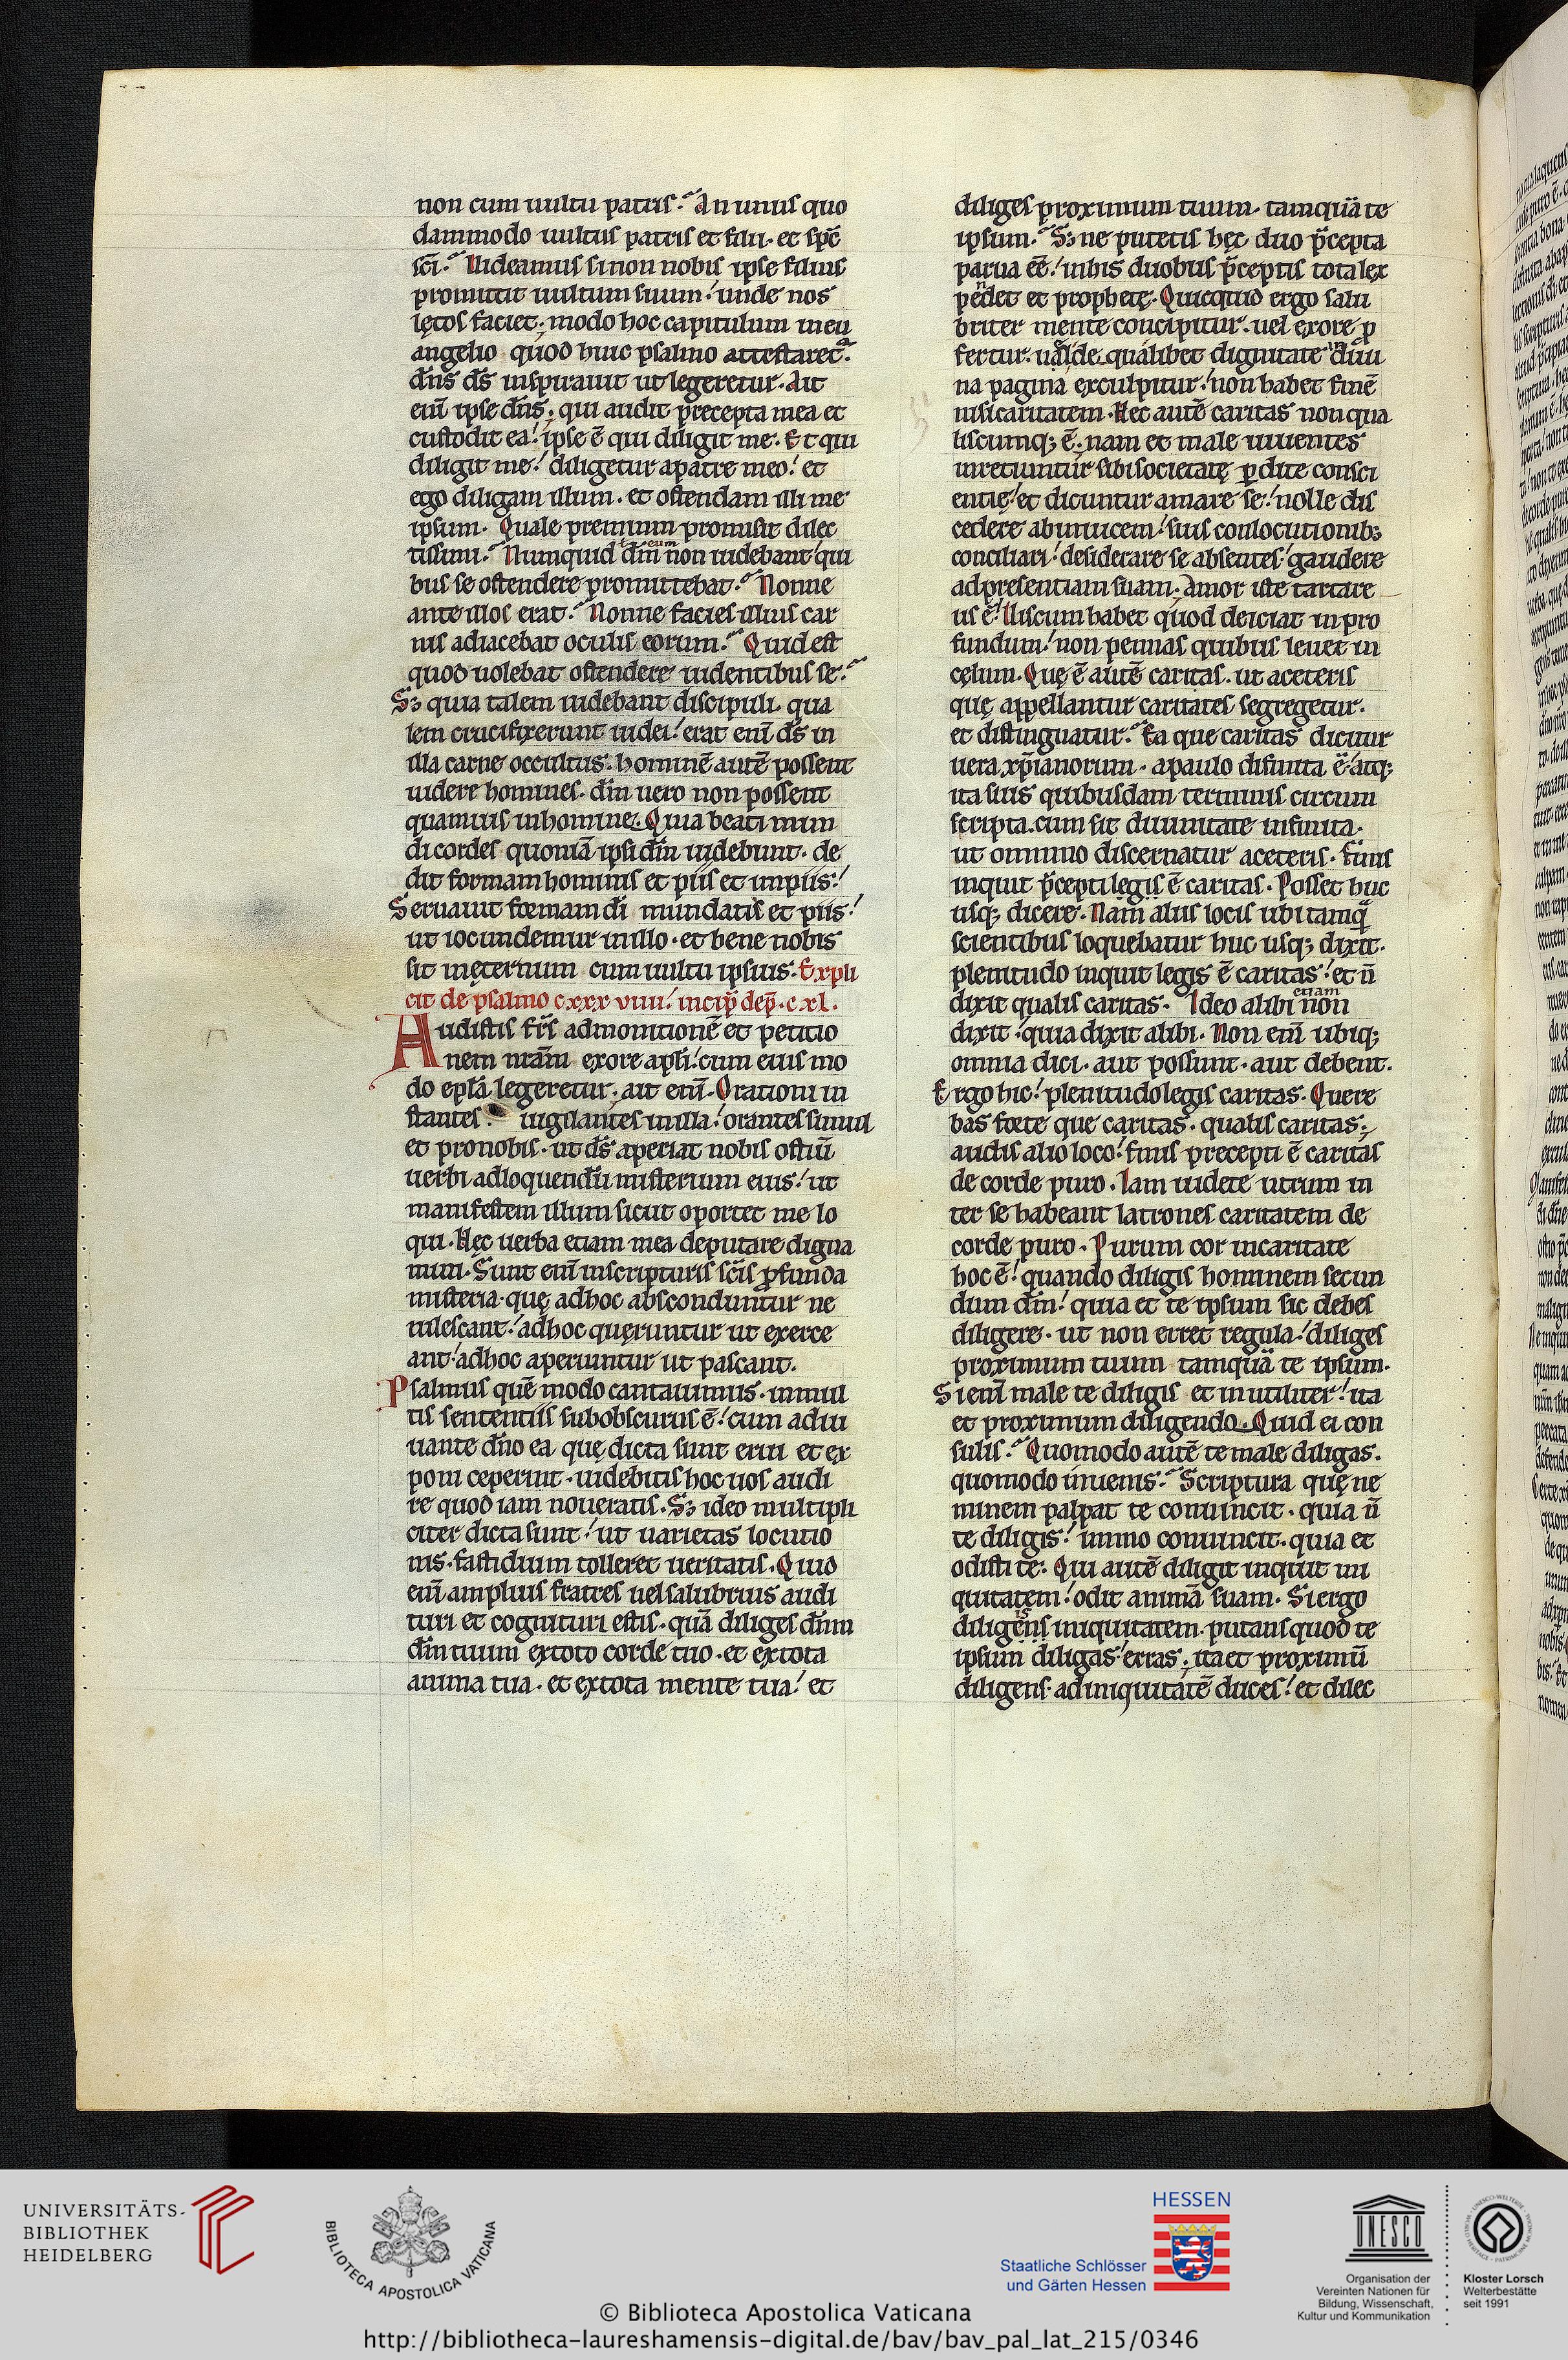 non cum uultu patris? An unus quo
dammodo uultus patris et filii. et spc̄
sc̄i? Uideamus si non nobis ipse filius
promittit uultum suum! unde nos
lętos faciet. modo hoc capitulum in eu
angelio quod huic psalmo attestaret᷑.
dn̄s ds̄ inspirauit ut legeretur. Ait
eni̅ ipse dn̄s. qui audit precepta mea et
custodit ea! ipse ē qui diligit me. Et qui
diligit me! diligetur a patre meo! et
ego diligam illum. et ostendam illi me
ipsum. Quale premium promisit dilec
tissimi? Numquid dm̄ non uidebant qui
bus se ostendere promittebat? Nonne
ante illos erat? Nonne facies illius car
nis adiacebat oculis eorum? Quid est
quod uolebat ostendere uidentibus se?
Sꝫ quia talem uidebant discipuli. qua
lem crucifixerunt iudei! erat eni̅ ds̄ in
illa carne occultus. hominē autē possent
uidere homines. dm̄ uero non possent
quamuis in homine. Quia beati mun
di cordes quoniā ipsi dm̄ uidebunt. de
dit formam hominis et piis et impiis!
Seruauit formam di̅ mundatis et piis!
ut iocundemur in illo. et bene nobis
sit in ęternum cum uultu ipsius. Expli
cit de psalmo cxxxviiii. incip̄ de p̄. cxl.
Audistis fr̄s admonitionē et petitio
nem nr̄am ex ore apl̄i! cum eius mo
do epl̄a legeretur. ait eni̅. Orationi in
stantes. uigilantes in illa! orantes simul
et pro nobis. ut ds̄ aperiat nobis ostiū
uerbi ad loquendū misterium eius! ut
manifestem illum sicut oportet me lo
qui. Hęc uerba etiam mea deputare digna
mini. Sunt eni̅ in scripturis sc̄is ꝓfunda
misteria. quę ad hoc absconduntur ne
uilescant! ad hoc quęruntur ut exerce
ant! ad hoc aperiuntur ut pascant.
Psalmus quē modo cantauimus. in mul
tis sententiis subobscurus ē! cum adiu
uante dn̄o ea quę dicta sunt erui et ex
poni ceperint. uidebitis hoc uos audi
re quod iam noueratis. Sꝫ ideo multipli
citer dicta sunt! ut uarietas locutio
nis. fastidium tolleret ueritatis. Quid
eni̅ amplius fratres uel salubrius audi
turi et cognituri estis. quā diliges dn̄m
dm̄ tuum ex toto corde tuo. et ex tota
anima tua. et ex tota mente tua! et
diliges proximum tuum. tamquā te
ipsum? Sꝫ ne putetis hęc duo p̄cepta
parua eē! in his duobus p̄ceptis tota lex
pendet et prophetę. Quicquid ergo salu
briter mente concipitur. uel ex ore p
fertur. ualde qualibet dignitate diui
na pagina exculpitur! non habet finē
nisi caritatem. Nec autē caritas non qua
liscumqꝫ ē. nam et male uiuentes
inretiuntur sibi societatę ꝑdite consci
entię! et dicuntur amare se! nolle dis
cedere ab inuicem! suis conlocutionibꝫ
conciliari! desiderare se absentes! gaudere
ad presentiam suam. Amor iste tartare
us ē! Uiscum habet quod deiciat in pro
fundum! non pennas quibus leuet in
cęlum. Quę ē autē caritas. ut a ceteris
quę appellantur caritates segregetur.
et distinguatur? Ea que caritas dicitur
uera xp̄ianorum. a paulo difinita ē atqꝫ
ita suis quibusdam terminis circum
scripta. cum sit diuinitate infinita.
ut omnino discernatur a ceteris. Finis
inquit p̄cepti legis ē caritas. Posset huc
usqꝫ dicere. Nam aliis locis ubi tamqā
scientibus loquebatur huc usqꝫ dixit.
plenitudo inquit legis ē caritas! et n̄
dixit qualis caritas. Ideo alibi etiam non
dixit. quia dixit alibi. Non eni̅ ubiqꝫ
omnia dici. aut possunt. aut debent.
Ergo hic! plenitudo legis caritas. Quere
bas forte que caritas. qualis caritas.
audis alio loco! finis precepti ē caritas
de corde puro. Iam uidete utrum in
ter se habeant latrones caritatem de
corde puro. Purum cor in caritate
hoc ē! quando diligis hominem secun
dum dm̄! quia et te ipsum sic debes
diligere. ut non erret regula! diliges
proximum tuum tamquā te ipsum.
Si eni̅ male te diligis et inutiliter! ita
et proximum diligendo. Quid ei con
sulis? Quomodo autē te male diligas.
quomodo inuenis? Scriptura quę ne
minem palpat te conuincit. quia n̄
te diligis! immo conuincit. quia et
odisti te: Qui autē diligit inquit ini
quitatem! odit animā suam. Si ergo
diligens iniquitatem. putans quod te
ipsum diligas! erras. ita et proximū
diligens. ad iniquitatē duces! et dilec
UNIVERSITÄTS-
BIBLIOTHEK
HEIDELBERG
BIBLIOTECA APOSTOLICA VATICANA
HESSEN
Staatliche Schlösser
und Gärten Hessen
UNESCO
Organisation der
Vereinten Nationen für
Bildung, Wissenschaft,
Kultur und Kommunikation
Kloster Lorsch
Welterbestätte
seit 1991
© Biblioteca Apostolica Vaticana
http://bibliotheca-laureshamensis-digital.de/bav/bav_pal_lat_215/0346